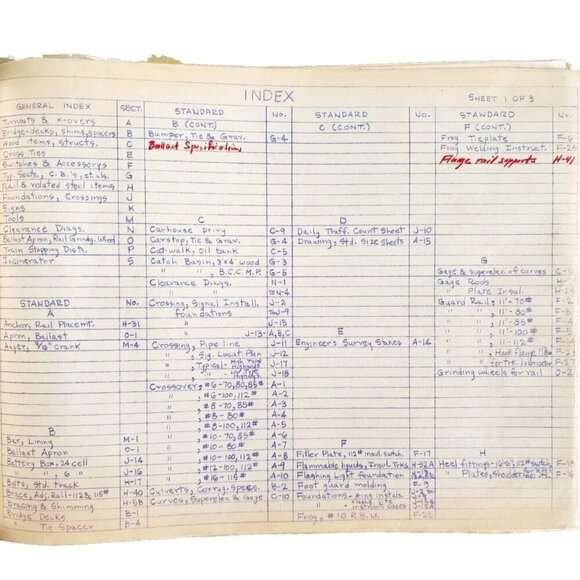 INDEX
SHEET 1 OF 3
GENERAL INDEX SECT.
Turnouts & x-overs A
Bridge-decks, shims, spacers B
Wood items, structs. C
Cross Ties E
Switches & Accessorys F
Typ. Sects., C.B.'s, et als. G
Rail & related steel items H
Foundations, Crossings J
Signs K
Tools M
Clearance Diags. N
Ballast Apron, Rail Grindg. O
Train Stopping Dists. P
Incinerator S
STANDARD No.
A
Anchor, Rail Placemt. H-31
Apron, Ballast O-1
Auger, 9/16" crank M-4
B
Bar, Lining M-1
Ballast Apron O-1
Battery Box, 24 cell J-14
" " , 6 " J-16
Buts, std. track H-17
Brace, Adj. Rail-112# & 115# H-40
Bracing & Shimming H-5B
Bridge Decks B-1
Tie Spacer B-4
STANDARD No.
B (CONT.)
Bumper, Tie & Grav. G-4
Ballast Specifications
C
Carhouse privy C-9
Carstop, Tie & Grav. G-4
Catwalk, oil tank C-5
Catch Basin, 3x4 wood G-3
" " , B.C.C.M.P. G-5
Clearance Diags. N-1
" " To N-4
Crossing, Signal Install. J-2
foundations To J-9
" J-13
" J-13-A,B,C
Crossing, Pipe line J-11
" , Sig. Locat. Plan J-12
" , Typical- J-17
" , " J-18
Crossover, #6-70,80,85# A-1
" , #6-100,112# A-2
" , #8-70,85# A-3
" , #8-80# A-4
" , #8-100,112# A-5
" , #10-70,85# A-6
" , #10-80# A-7
" , #10-100,112# A-8
" , #12-100,112# A-9
" , #16-115# A-10
Culverts, Corrug. specs. B-2
Curves, Superelev. & Gage C-10
STANDARD No.
C (CONT.)
D
Daily Traff. Count Sheet J-10
Drawing, Std. Size sheets A-15
E
Engineer's Survey Stakes A-14
F
Filler Plate, 112# insul. switch F-17
Flammable liquids, Insul. Trks H-32A
Flashing Light foundation
Foot guard molding F-9
Foundations- x-ing instals.
Frog, #10 R.B.M. F-25
STANDARD No.
F (CONT.)
Frog Tieplate
Frog Welding Instruct.
Flange rail supports H-41
G
Gage & superelev. of curves
Gage Rods
" Plate Insul.
Guard Rail, 11'-70#
" " , 11'-80#
" " , 11'-85#
" " , 11'-100#
" " , 11'-112#
" " , Hook flange
" " for trk.
Grinding wheels for rail
H
Heel fittings-16'6", 112# switch
" Plates, shoulder